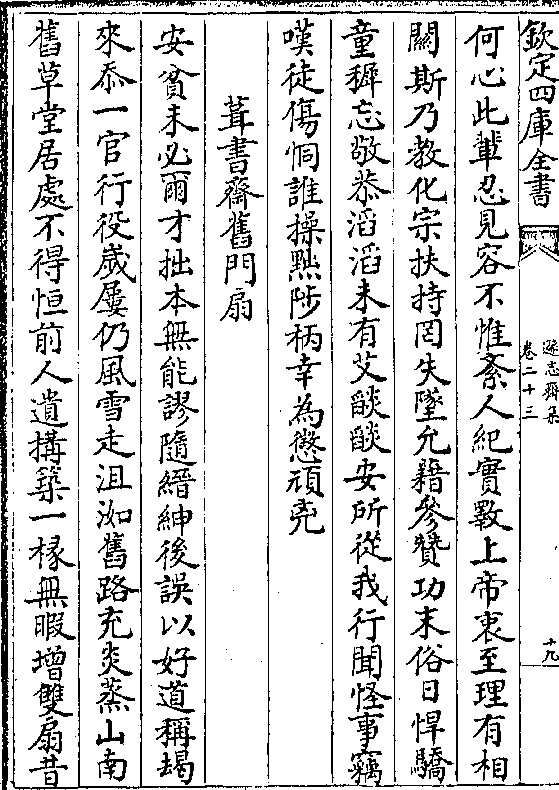 欽定四庫全書
遜志齋集
卷二十三
十九
何心此輩忍見容不惟紊人紀實斁上帝衷至理有相
關斯乃教化宗扶持罔失墜允藉參贊功末俗日悍驕
童穉忘敬恭滔滔未有艾燄燄安所從我行聞怪事竊
嘆徒傷恫誰操黜陟柄幸為懲頑兇
葺書齋舊門扇
安貧未必爾才拙本無能謬隨縉紳後誤以好道稱朅
來忝一官行役歲屢仍風雪走沮洳舊路充炎蒸山南
舊草堂居處不得恒前人遺搆築一椽無暇增雙扇昔